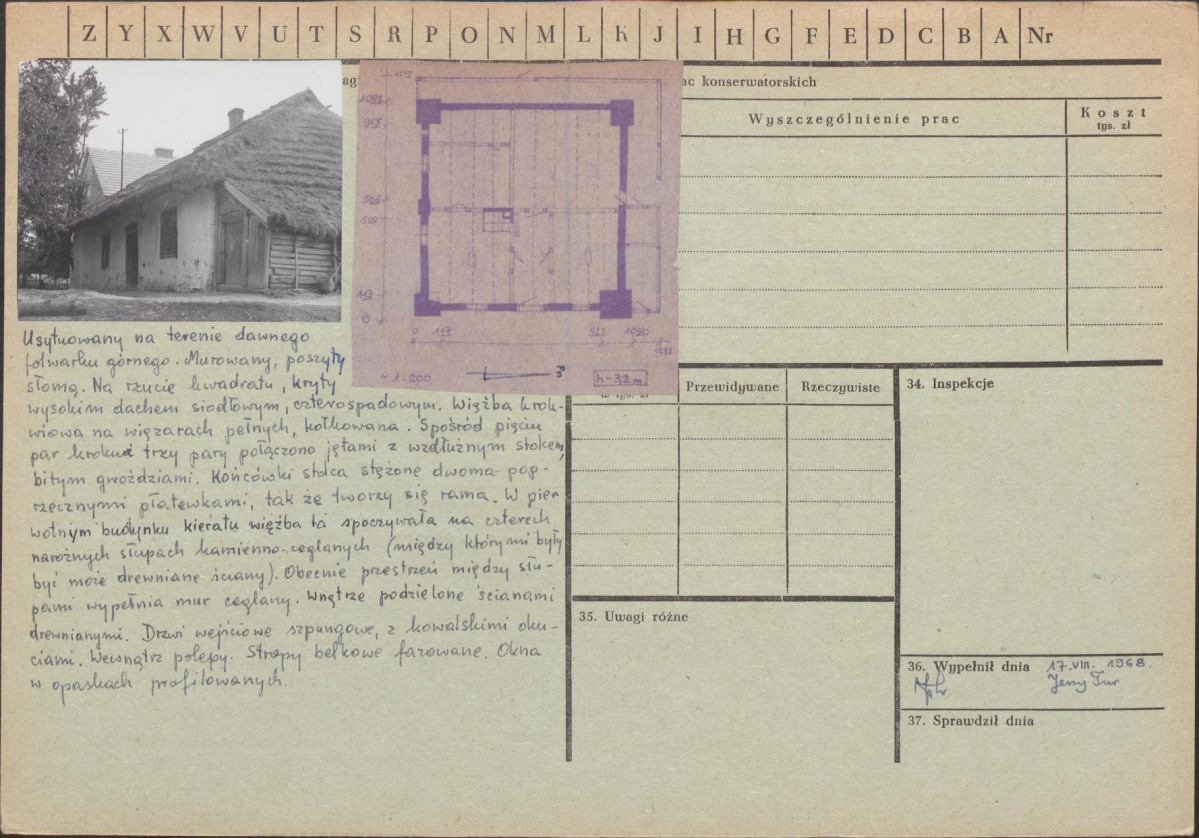 Z Y X W V U T S R P O N M L K J I H G F E D C B A Nr
ac konserwatorskich
Wyszczególnienie prac
Koszt
tys. zł
1098
955
565
500
143
0
0 143 923 1080
1235
~1:200
h-3,2m
Usytuowany na terenie dawnego
folwarku górnego. Murowany, poszyty
słomą. Na rzucie kwadratu, kryty
wysokim dachem siodłowym, czterospadowym. Więźba krok-
wiowa na więzarach pełnych, kołkowana. Spośród pięciu
par krokwi trzy pary połączono jętami z wzdłużnym stolcem,
bitym gwoździami. Końcówki stolca stężone dwoma pop-
rzecznymi płatewkami, tak że tworzy się rama. W pier
wotnym budynku kieratu więźba ta spoczywała na czterech
narożnych słupach kamienno-ceglanych (między którymi były
być może drewniane ściany). Obecnie przestrzeń między słu-
pami wypełnia mur ceglany. Wnętrze podzielone ścianami
drewnianymi. Drzwi wejściowe szpungowe, z kowalskimi oku-
ciami. Wewnątrz polepy. Stropy belkowe fazowane. Okna
w opaskach profilowanych.
Przewidywane
Rzeczywiste
34. Inspekcje
35. Uwagi różne
36. Wypełnił dnia 17.VIII.1968.
Jerzy Tur
37. Sprawdził dnia